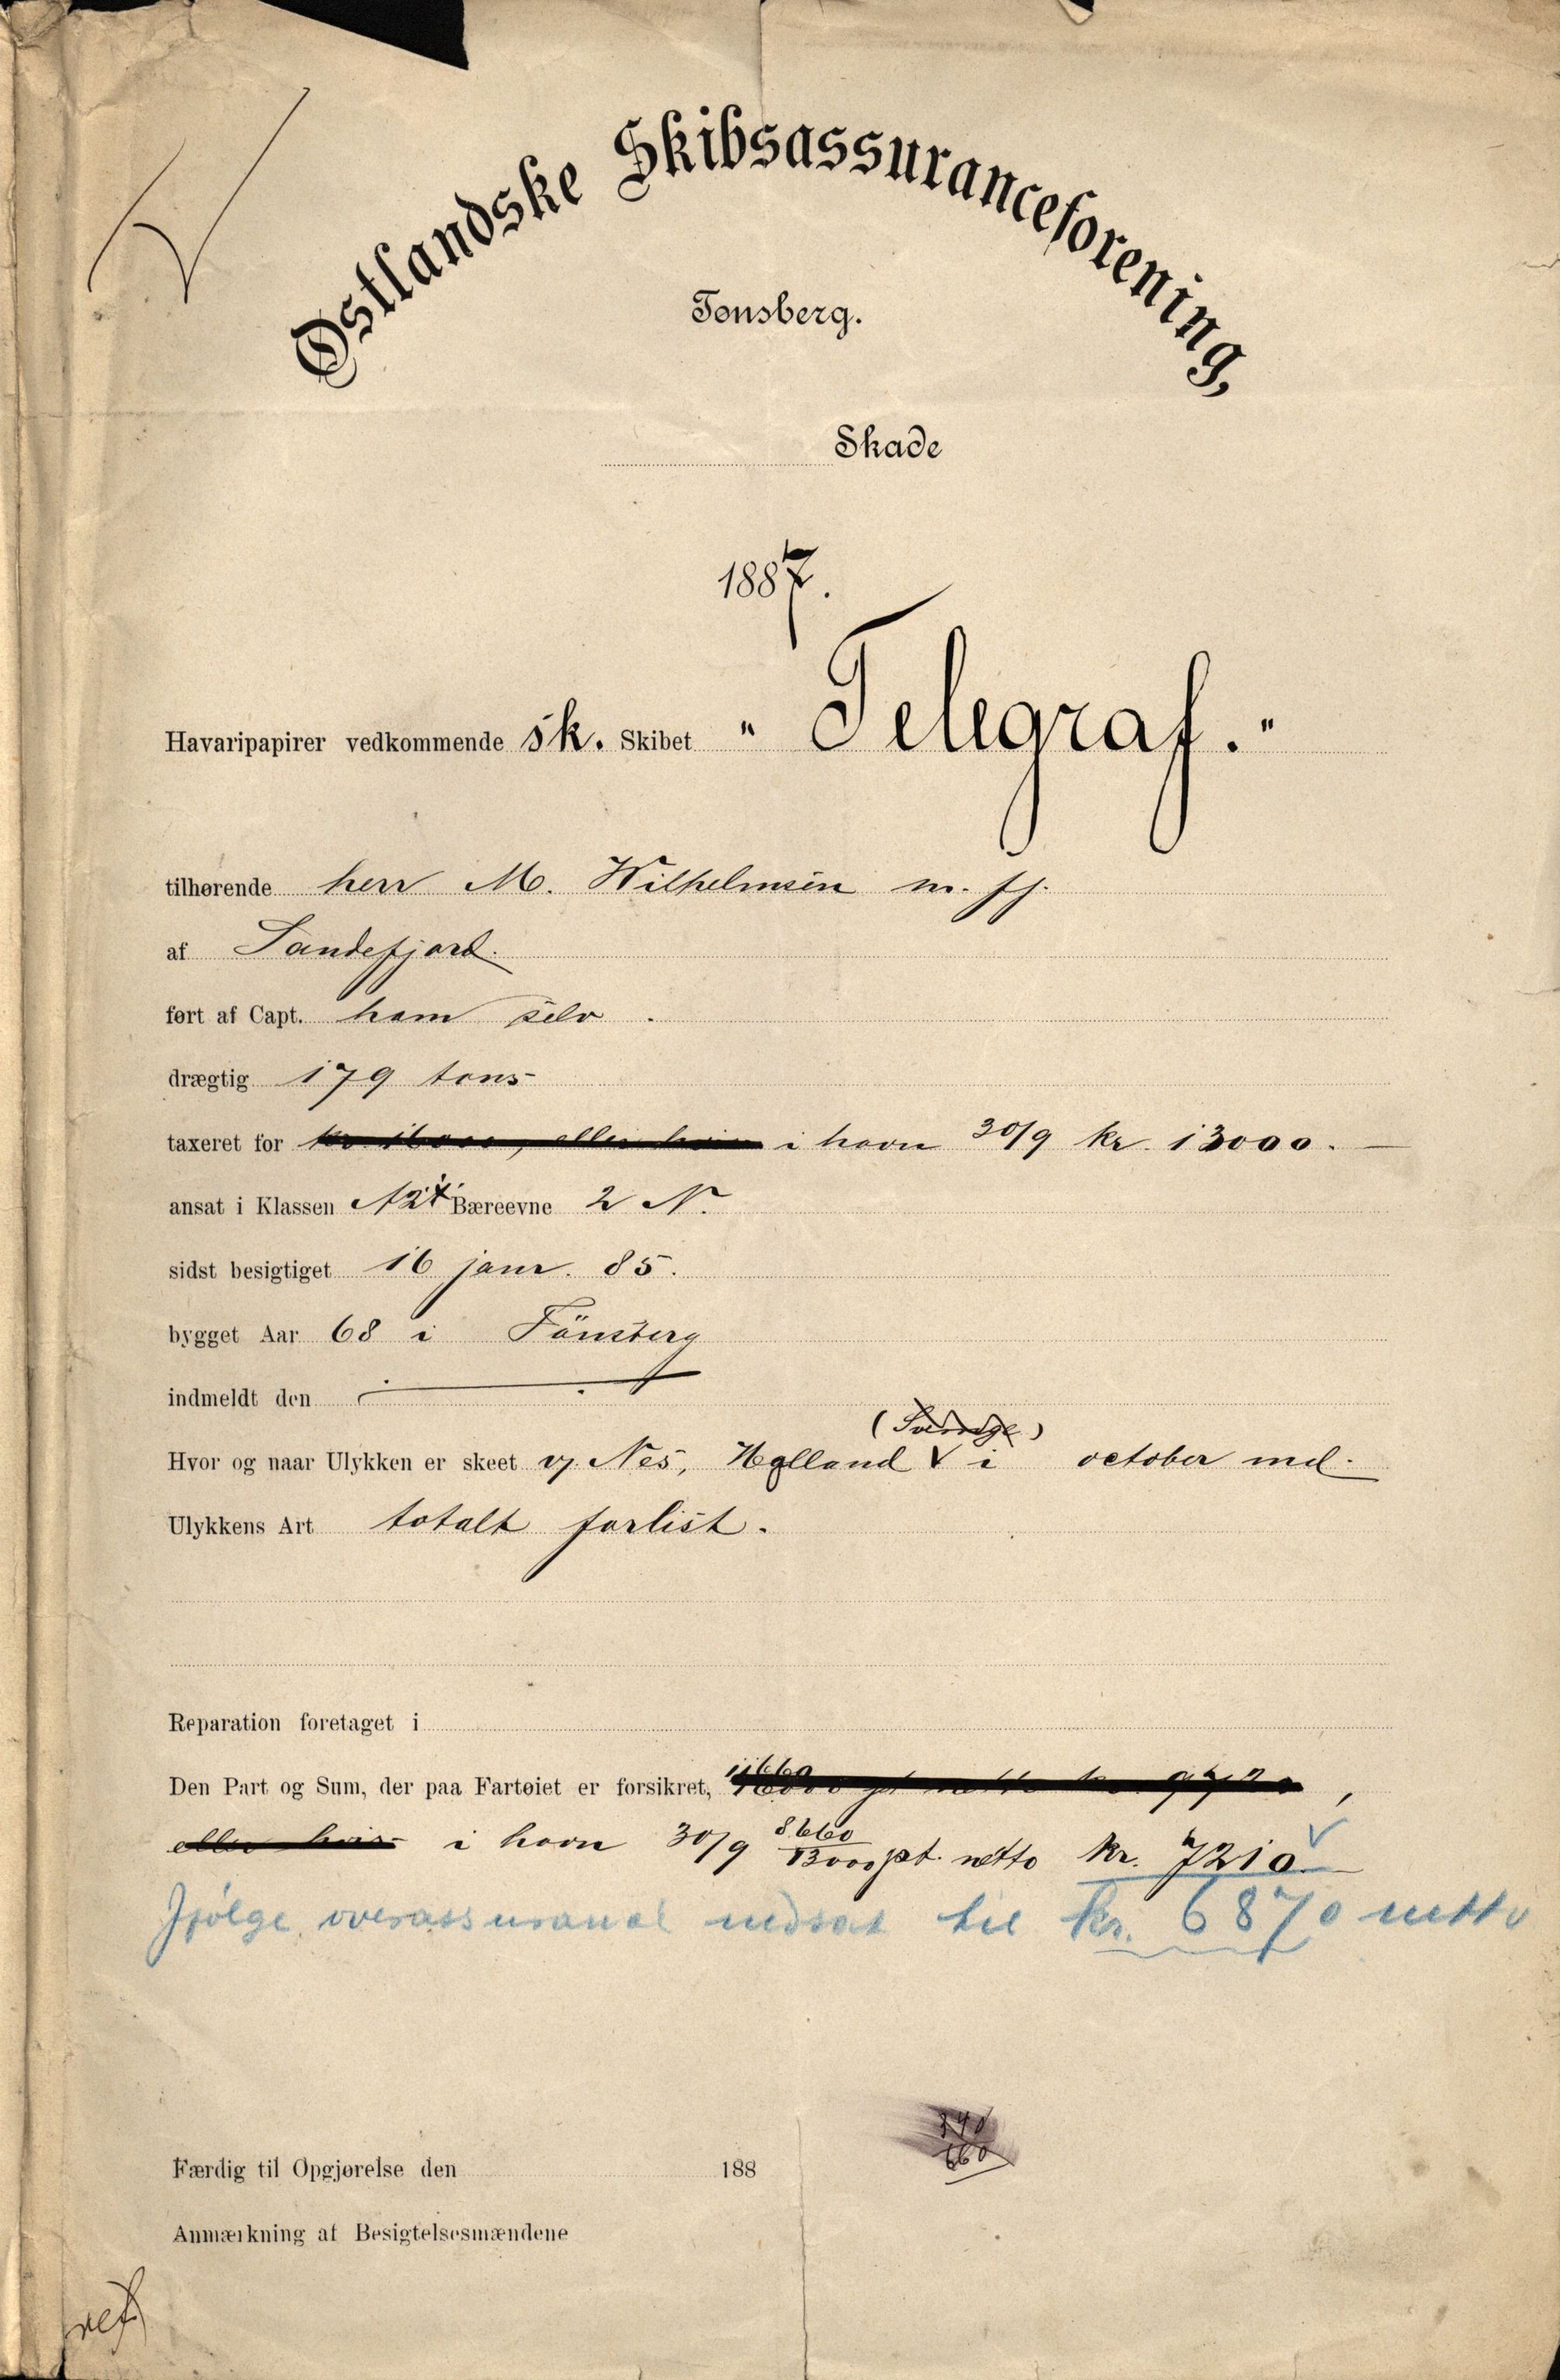 Østlandske Skibsassuranceforening,
Tønsberg.
Skade
1887.
Havaripapirer vedkommende sk. Skibet "Telegraf."
tilhørende herr M. Wilhelmsen m. fl.
af Sandefjord.
ført af Capt. ham selv.
drægtig 179 tons
taxeret for kr. 16000, eller hvis i havn 30/9 kr. 13000.—
ansat i Klassen A2 Bæreevne 2 N.
sidst besigtiget 16 janr. 85.
bygget Aar 68 i Tönsberg
indmeldt den
(Sverige)
Hvor og naar Ulykken er skeet v/ Nes, Holland i october md.
Ulykkens Art totalt forlist.
Reparation foretaget i
Den Part og Sum, der paa Fartøiet er forsikret, 11660 16000 pt netto kr.
eller hvis i havn 30/9 8660/13000 pt. netto kr. 7210
Ifölge overassurance nedsat til kr. 6870 netto
340
660
Færdig til Opgjørelse den 188
Anmærkning af Besigtelsesmændene